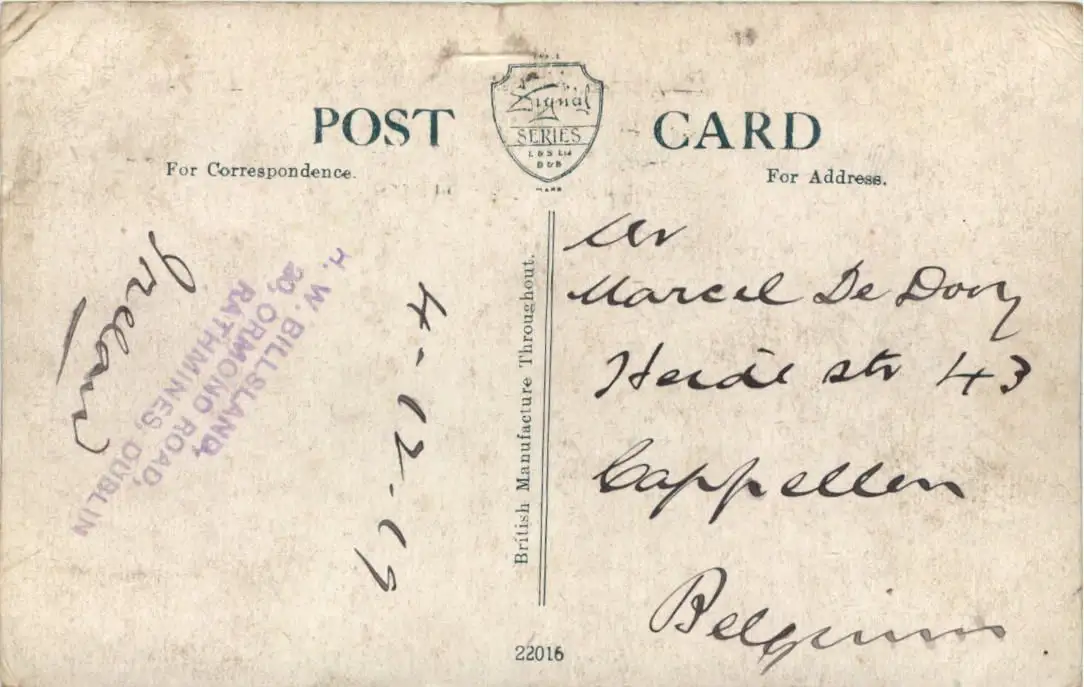 POST CARD
Signal
SERIES
E & S Ltd
D & B
For Correspondence.
For Address.
Ireland
H. W. BILLSLAND,
20, ORMOND ROAD,
RATHMINES, DUBLIN
4-12-19
British Manufacture Throughout.
Mr
Marcel De Dooy
Heide str 43
Cappellen
Belgium
22016